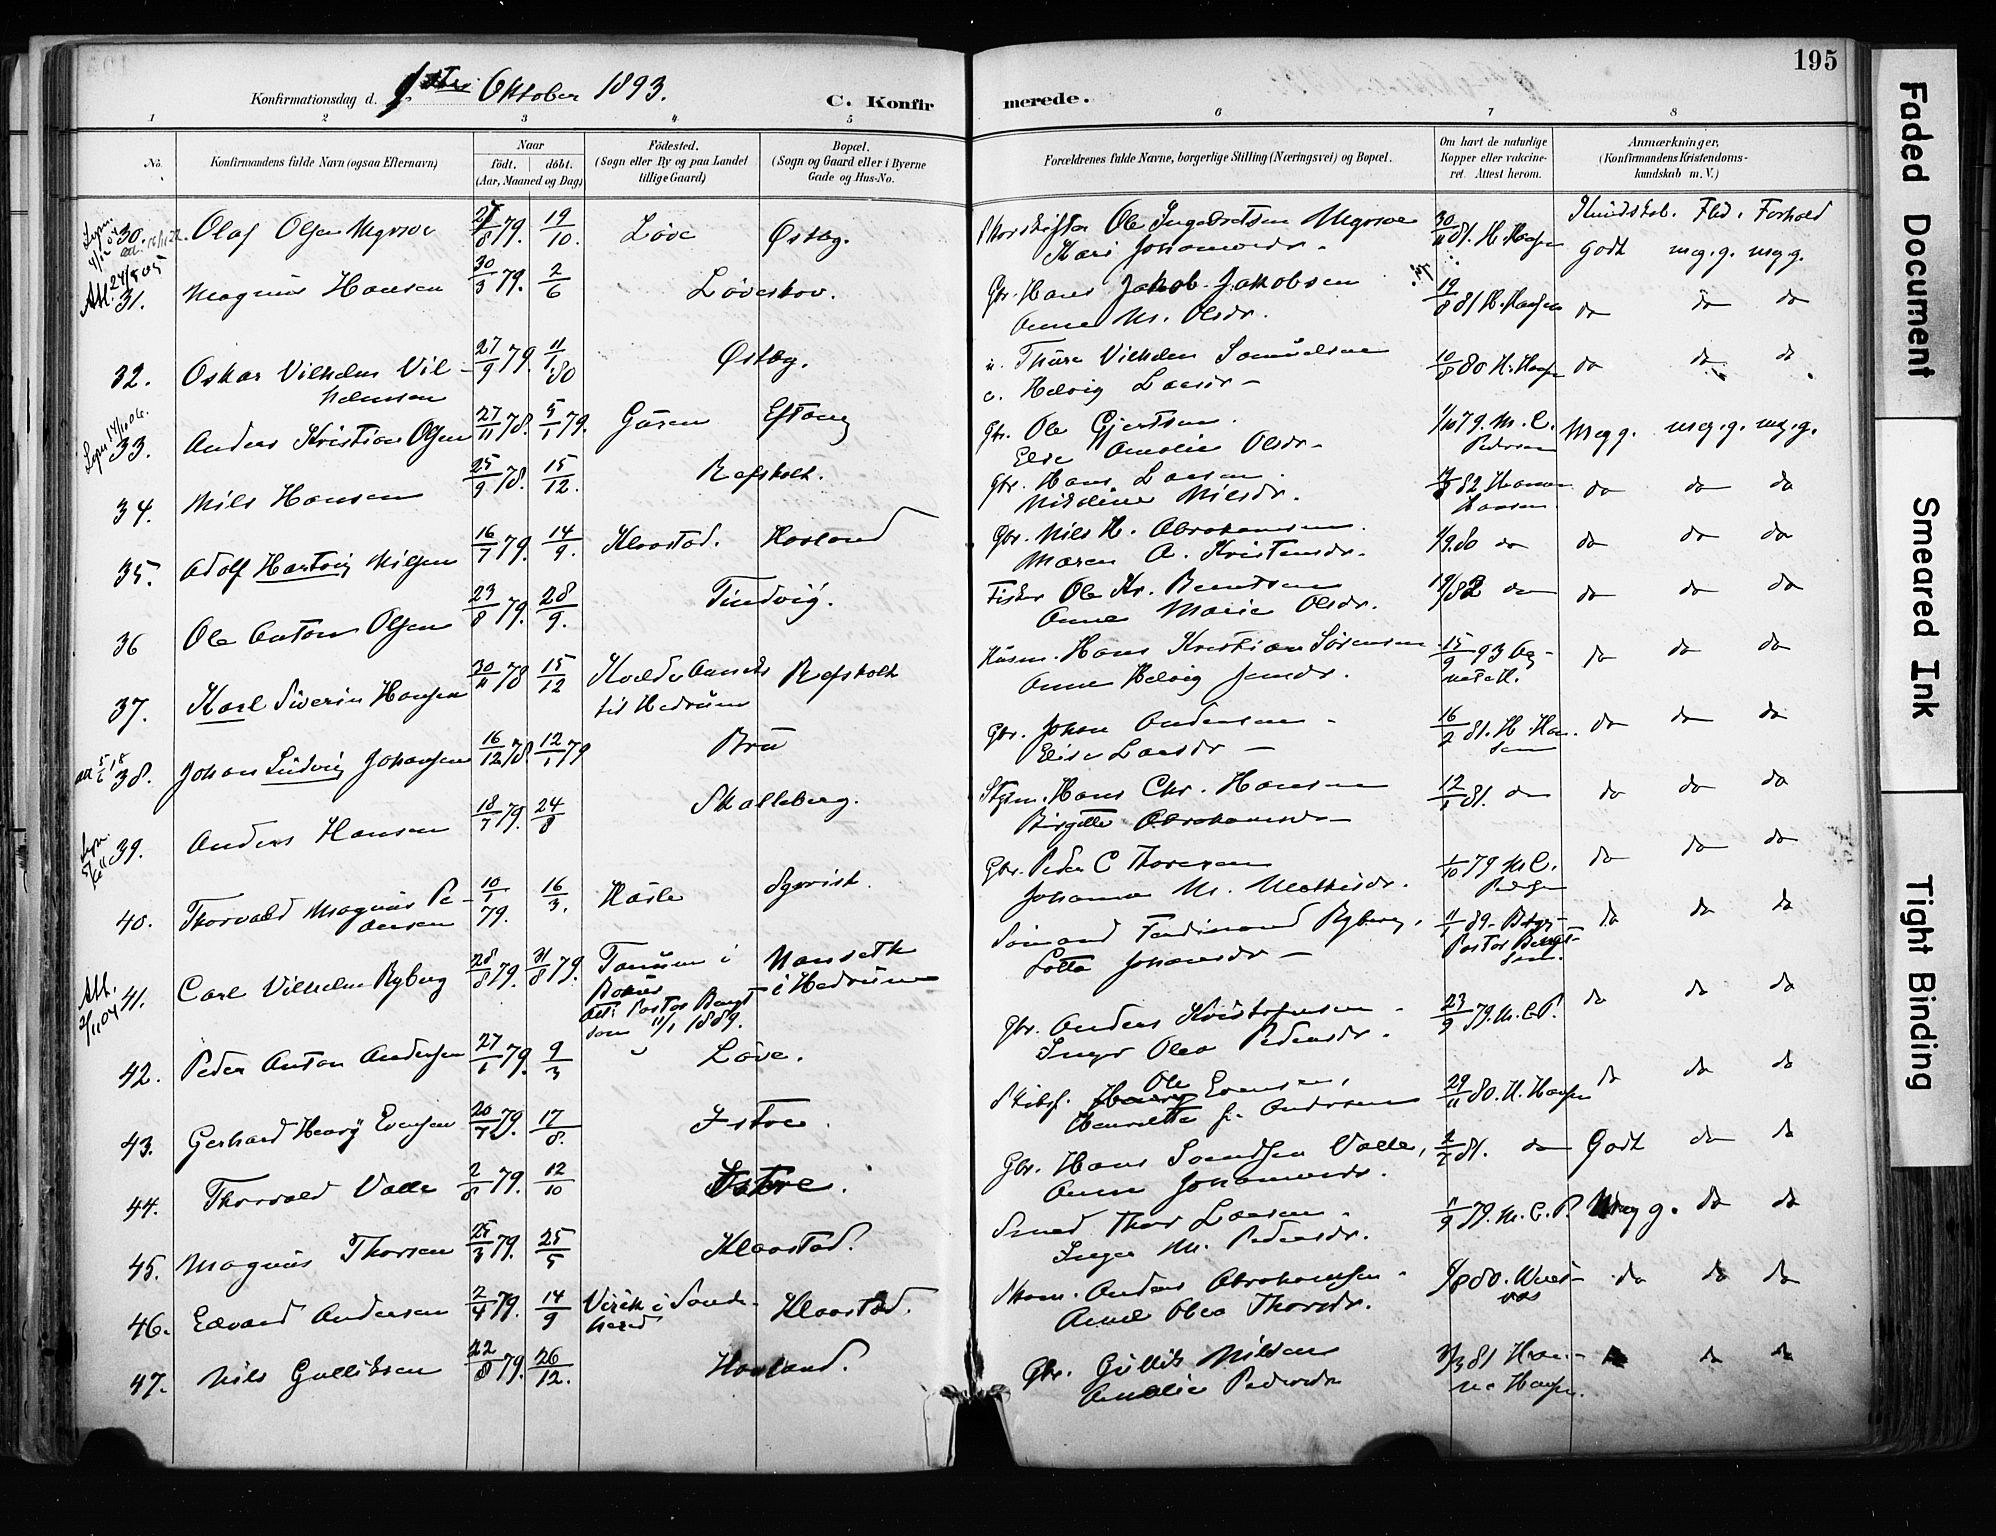 195
Konfirmationsdag d. 1ste Oktober 1893.
C. Konfir merede.
1 2 3 4 5 6 7 8
No.
Konfirmandens fulde Navn (ogsaa Efternavn)
Naar
født. døbt.
(Aar, Maaned og Dag)
Födested.
(Sogn eller By og paa Landet
tillige Gaard)
Bopæl.
(Sogn og Gaard eller i Byerne
Gade og Hus-No.
Forældrenes fulde Navne, borgerlige Stilling (Næringsvei) og Bopæl.
Om havt de naturlige
Kopper eller vakcine-
ret. Attest herom.
Anmærkninger,
(Konfirmandens Kristendoms-
kundskab m. V.)
Kundskab. Flid. Forhold
30. Olaf Olsen 79. 19/10. Løve Østby. Ole Ingebretsen
Kari Johannesdr. 30/11 81. H. Hansen godt meg.g. meg.g.
Att. 24/5 05
31. Magnus Hansen 30/3 79. 2/6 Løveskov. Gbr. Hans Jakob Jakobsen
Anne M. Olsdr. 19/8 81 H. Hansen do do do
32. Oskar Vilhelm Vil-
helmsen 27/9 79. 11/1 80 Østby. Vilhelm Samuelsen
Helvig Larsdr 10/8 80 H. Hansen do do do
33. Anders Kristian Olsen 27/11 78. 5/1 79. Gusen Eftang Gbr. Ole Gjertsen.
Else Amalie Olsdr. 1/10 79. M. C.
Pedersen Meg g. meg.g. meg.g.
34. Nils Hansen 25/9 78. 15/12. Refsholt. Gbr. Hans Larsen
Nikoline Nilsdr. 82 Hanna
Hansen. do do do
35. Adolf Hartvig Nilsen 16/7 79. 14/9. Klaastad. Haaland Gbr. Nils H. Abrahamsen.
Maren A. Kristensdr. 1/9 80 do do do do
36 Ole Anton Olsen 23/8 79. 28/9. Tindvig. Fisker Ole Kr. Berntsen
Anne Marie Olsdr. 82 do do do do
37. Karl Siverin Hansen 30/11 78 15/12 Kvelde Annex
til Hedrum Refsholt Husm. Hans Kristian Sørensen
Anne Helvig Jensdr. 15/9 93 do do do
38. Johan Ludvig Johansen 16/12 78. 12/1 79 Bru Gbr. Johan Andersen
Elise Larsdr 16/2 81. H. Han-
sen do do do
39. Anders Hansen 18/7 79. 24/8 Skalleberg. Styrm. Hans Chr. Hansen
Birgitte Abrahamsdr 12/1 81. do do do do
40. Thorvald Magnus Pe-
dersen 10/1 79. 16/3. Hasle Gbr. Peder C Thoresen
Johanna M. Mathisdr. 1/10 79 M. C.
Pedersen do do do
Att.
2/11 04
41. Carl Vilhelm Ryberg 28/8 79. 31/8 79. Tanum i
Bohus
Att: Pastor Bengt-
son 11/1 1889. Nanseth
i Hedrum Sømand Ferdinand Ryberg,
Lotta Johansdr 11/1 89.
Pastor Bengt-
son. do do do
42. Peder Anton Andersen 27/1 79. 9/3 Løve. Gbr. Anders Kristofersen
Inger Olea Pedersdr. 23/9 79. M. C. P. do do do
43. Gerhard Henry Evensen 20/7 79. 17/8. Istre. Skibsf. Ole Evensen,
Henriette f. Andersen 29/11 80. H. Hansen do do do
44. Thorvald Valle 2/8 79. 12/10 Istre. Gbr. Hans Svendsen Valle,
Anne Johannesdr. 2/7 81. do Godt do do
45. Magnus Thorsen 25/3 79. 25/5 Klaastad. Smed Thor Larsen.
Inger M. Pedersdr. 1/9 79. M. C. P. Meg g. do do
46. Edvard Andersen 2/4 79. 14/9 Virik i Sande-
herred Klaastad. Skom. Anders Abrahamsen
Anne Olea Thorsdr. 6/8 80. do do do
47. Nils Gulliksen 22/8 79. 26/12. Haaland. Gbr. Gullik Nilsen
Amalie Pedersdr 3/3 81 Han-
na Hansen. do do
Faded Document
Smeared Ink
Tight Binding